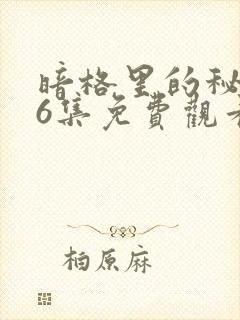 暗格里的秘
6集免費觀
柏原麻